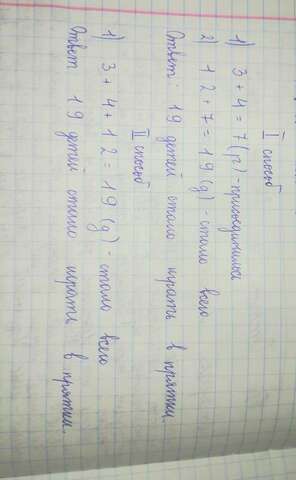 I способ
1) 3 + 4 = 7 (р) - присоединились
2) 12 + 7 = 19 (д) - стало всего
Ответ: 19 детей стало играть в прятки.
II способ
1) 3 + 4 + 12 = 19 (д) - стало всего
Ответ 19 детей стало играть в прятки.